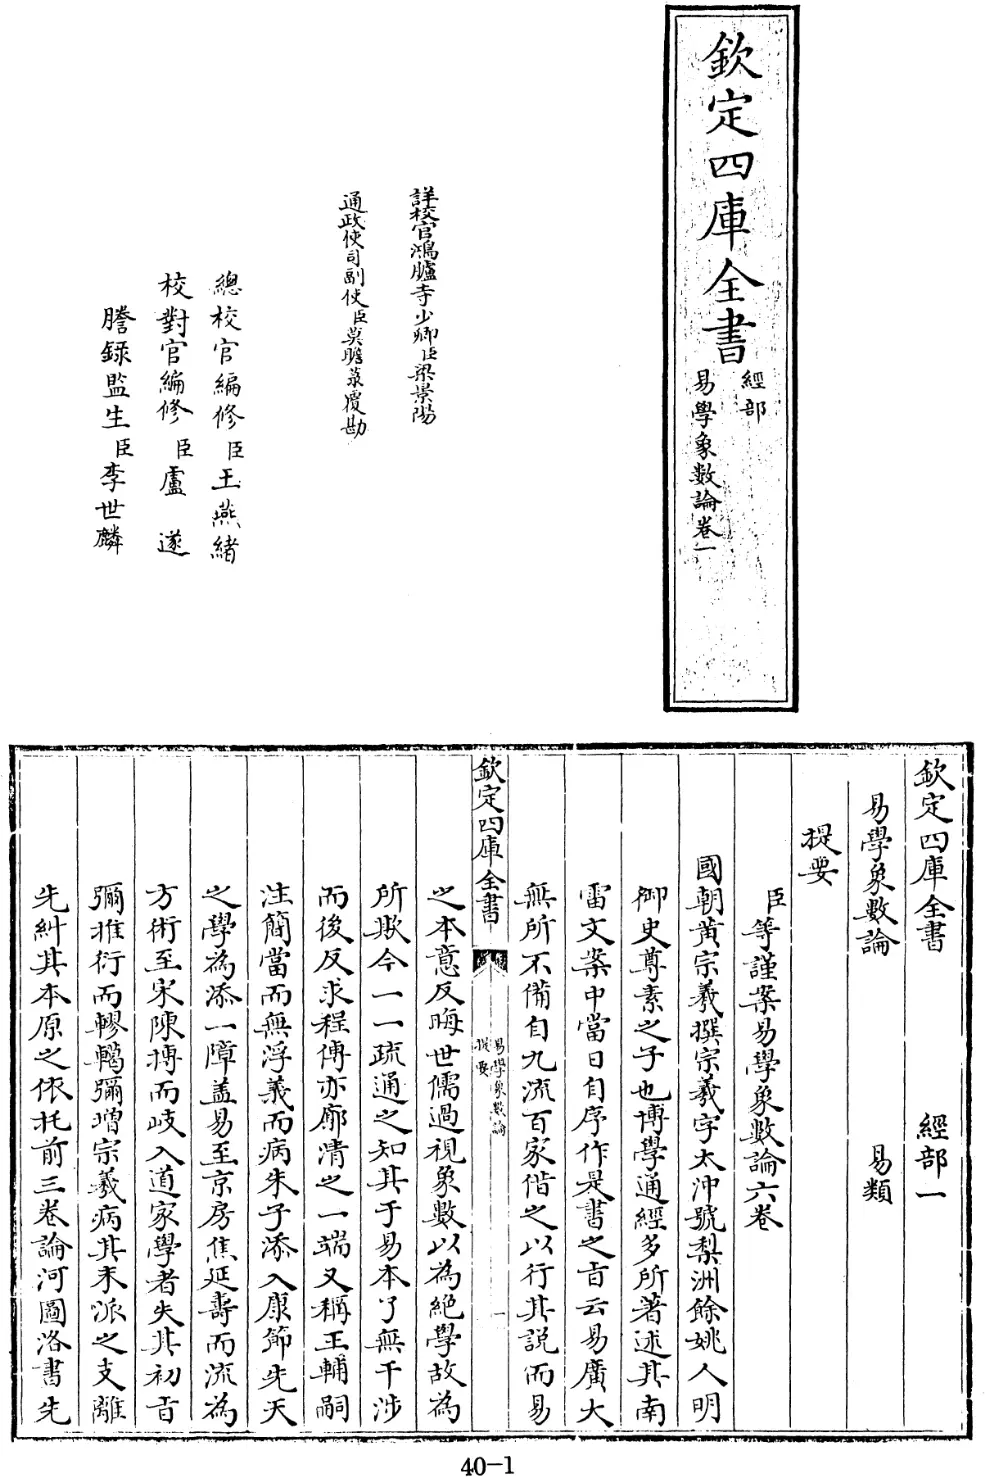 欽定四庫全書
經部
易學象數論卷一
詳校官鴻臚寺少卿臣梁景陽
通政使司副使臣莫瞻菉覆勘
總校官編修臣王燕緒
校對官編修臣盧遂
謄錄監生臣李世麟
欽定四庫全書 經部一
易學象數論 易類
提要
臣等謹案易學象數論六卷
國朝黄宗羲撰宗羲字太沖號梨洲餘姚人明
御史尊素之子也博學通經多所著述其南
雷文案中當日自序作是書之㫖云易廣大
無所不備自九流百家借之以行其説而易
欽定四庫全書
易學象數論
提要
一
之本意反晦世儒過視象數以為絶學故為
所欺今一一疏通之知其于易本了無干涉
而後反求程傳亦廓清之一端又稱王輔嗣
注簡當而無浮義而病朱子添入康節先天
之學為添一障盖易至京房焦延壽而流為
方術至宋陳摶而岐入道家學者失其初㫖
彌推衍而轇轕彌增宗羲病其末派之支離
先糾其本原之依托前三卷論河圖洛書先
40-1